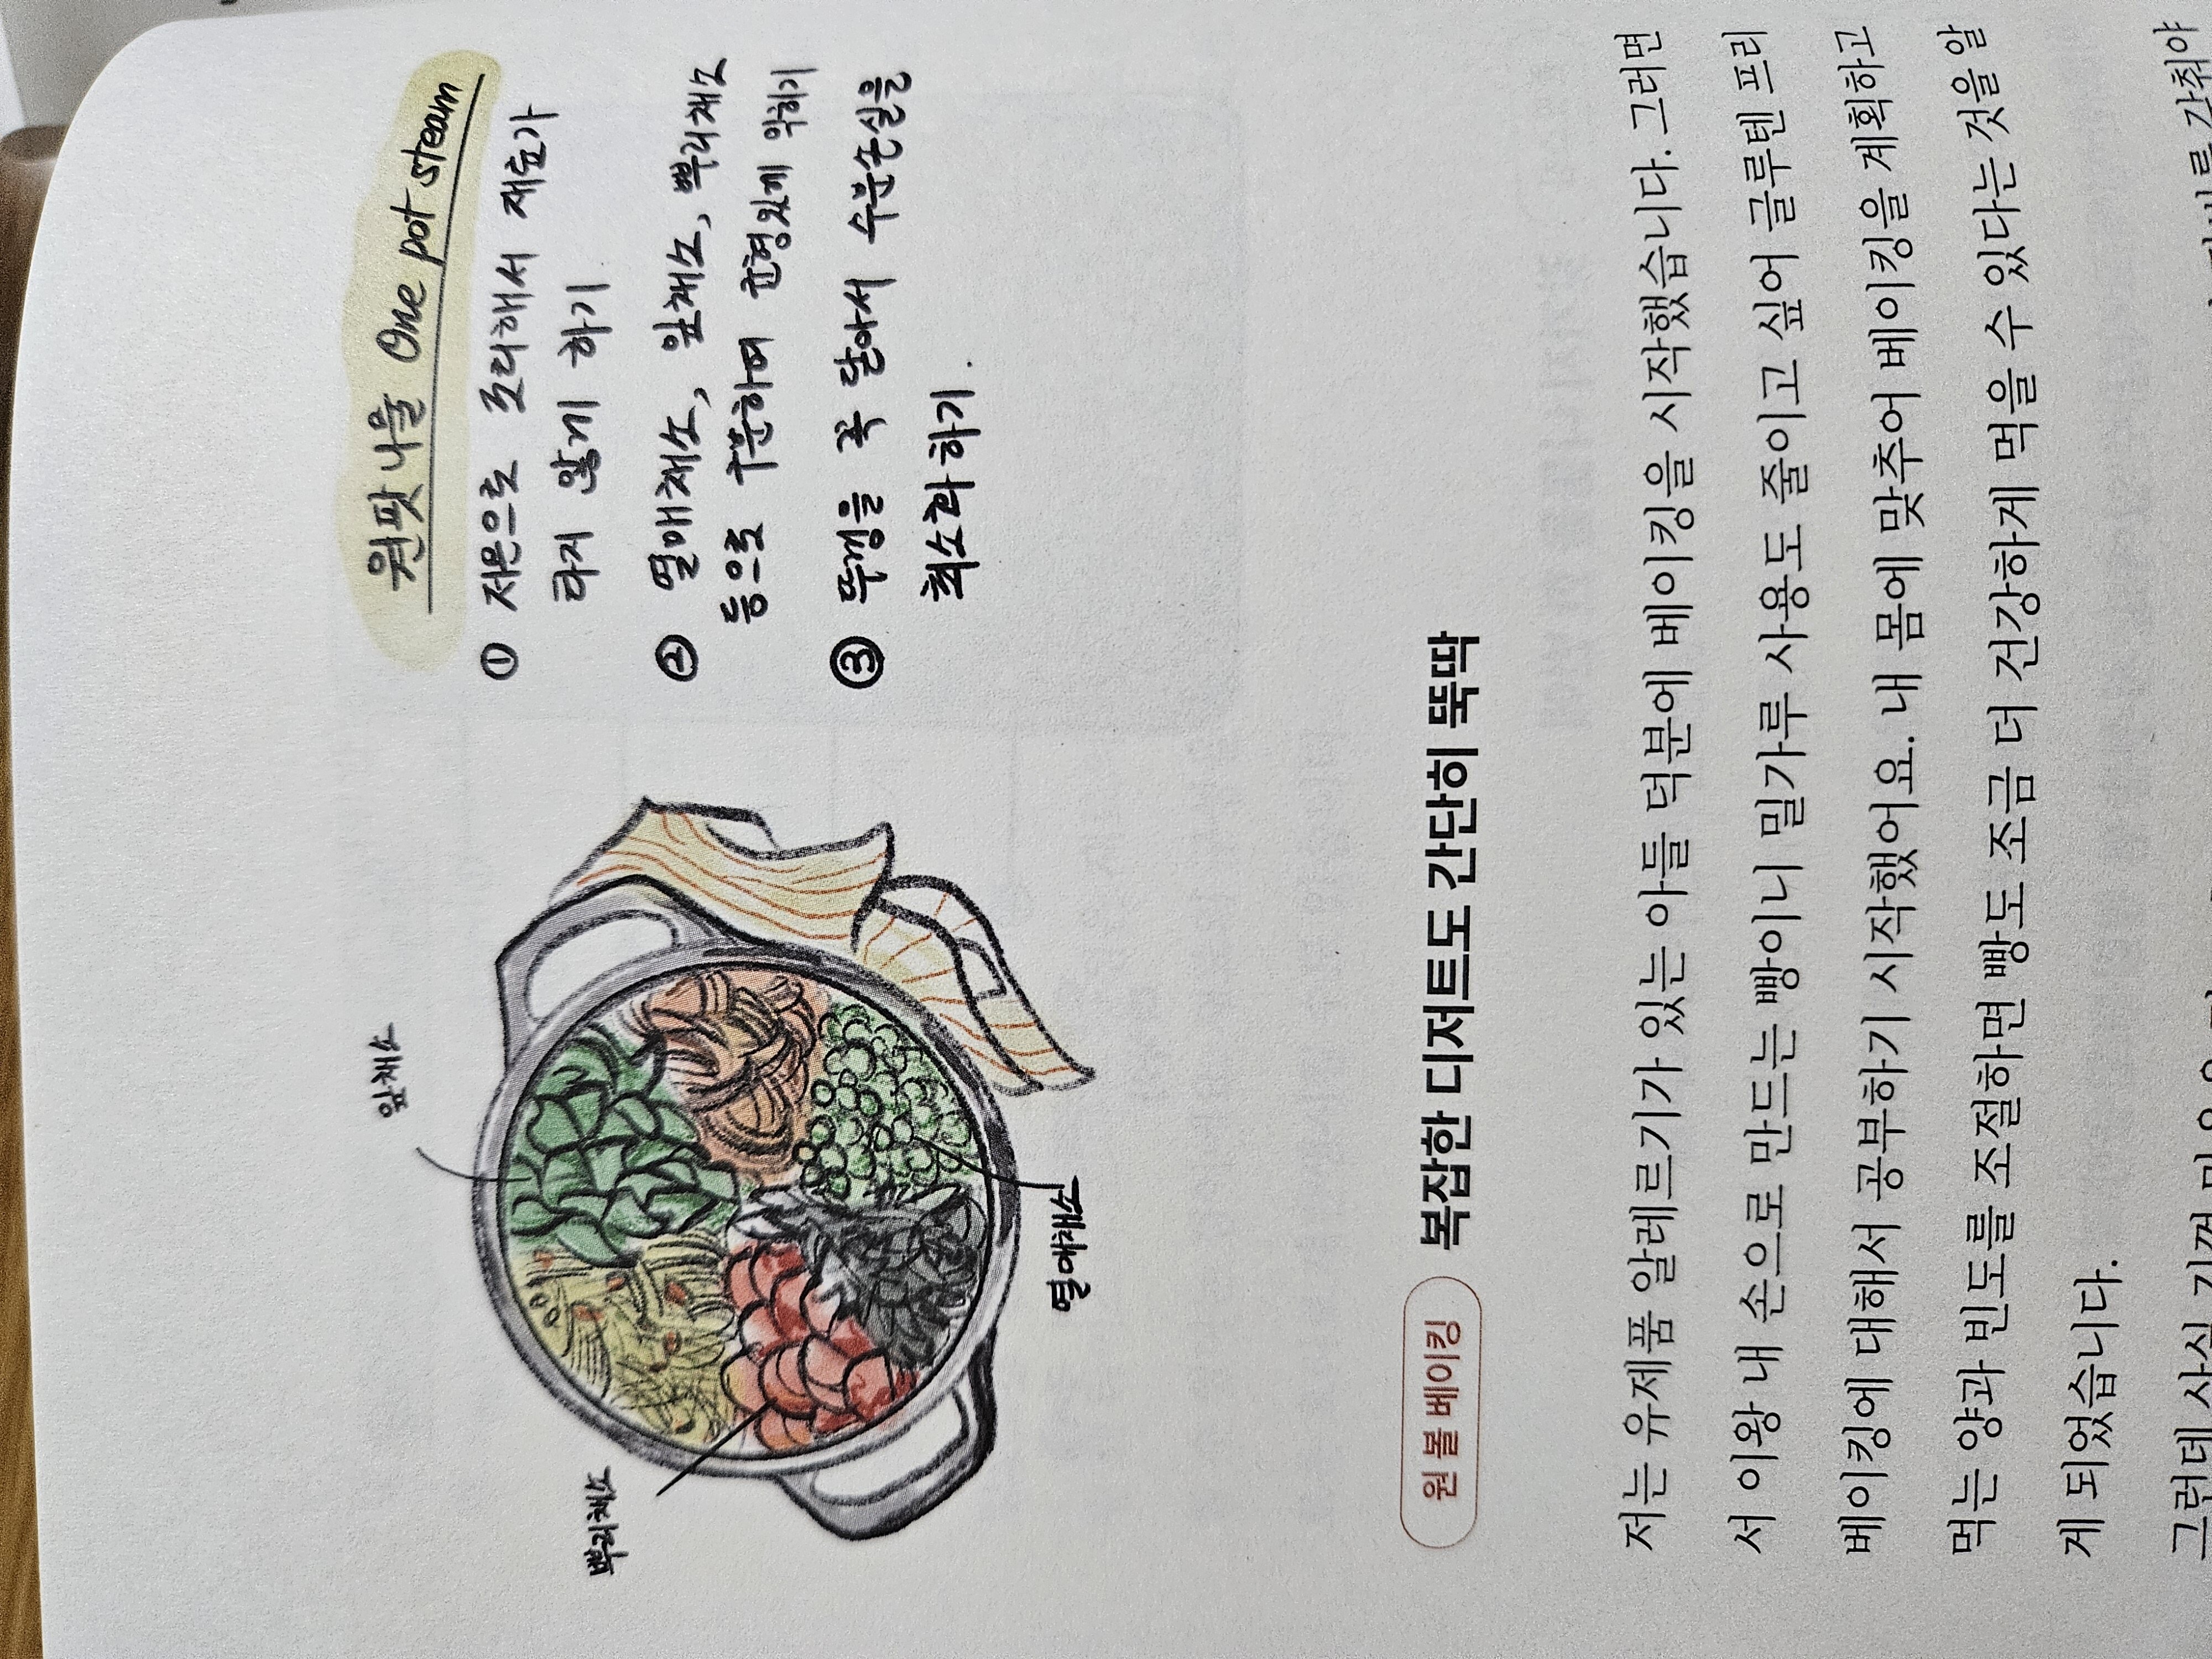 원팟 나물 One pot steam
① 저온으로 조리해서 재료가
타지 않게 하기
② 열매채소, 잎채소, 뿌리채소
등으로 구분하며 균형있게 익히기
③ 뚜껑을 꼭 닫아서 수분손실을
최소화하기.
잎채소
뿌리채소
열매채소
원 볼 베이킹 복잡한 디저트도 간단히 뚝딱
저는 유제품 알레르기가 있는 아들 덕분에 베이킹을 시작했습니다. 그러면
서 이왕 내 손으로 만드는 빵이니 밀가루 사용도 줄이고 싶어 글루텐 프리
베이킹에 대해서 공부하기 시작했어요. 내 몸에 맞추어 베이킹을 계획하고
먹는 양과 빈도를 조절하면 빵도 조금 더 건강하게 먹을 수 있다는 것을 알
게 되었습니다.
그런데 사실